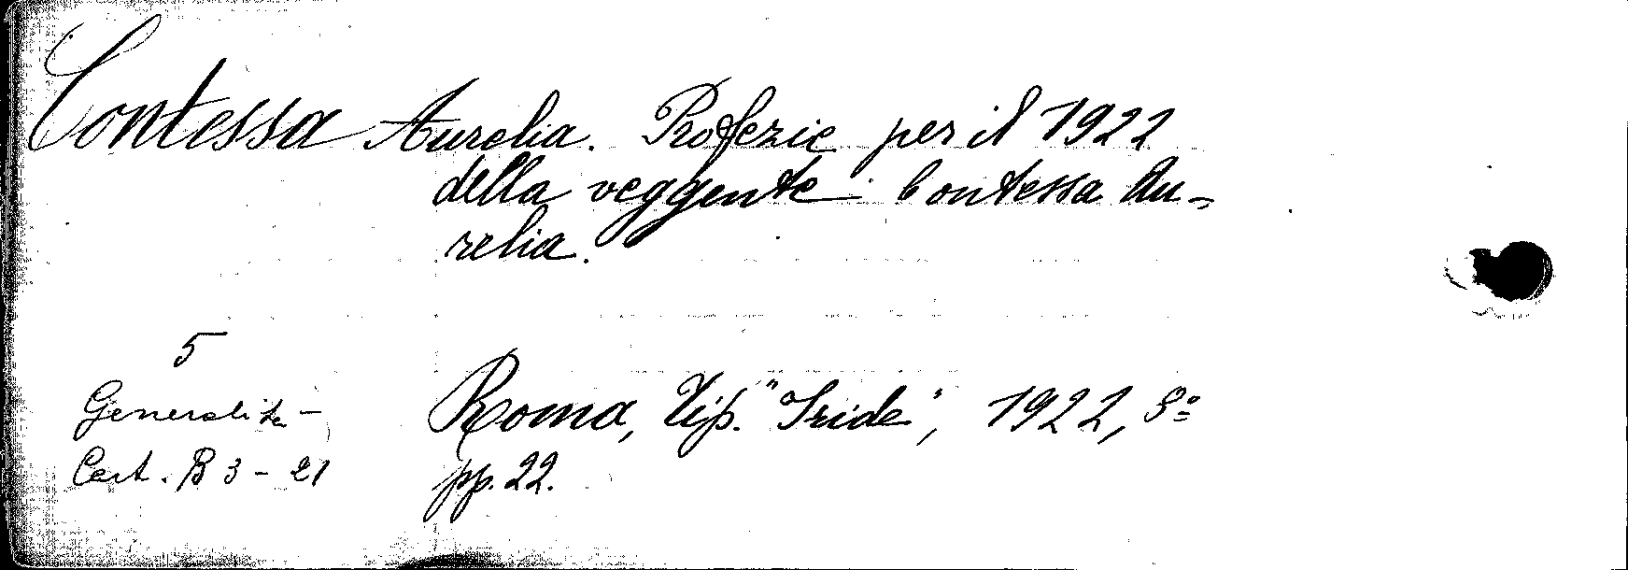 Contessa Aurelia. Profezie per il 1922
della veggente Contessa Au-
relia.
5
Generalità -
Cart. B 3 - 21
Roma, Tip. "Iride", 1922, 8º
pp. 22.